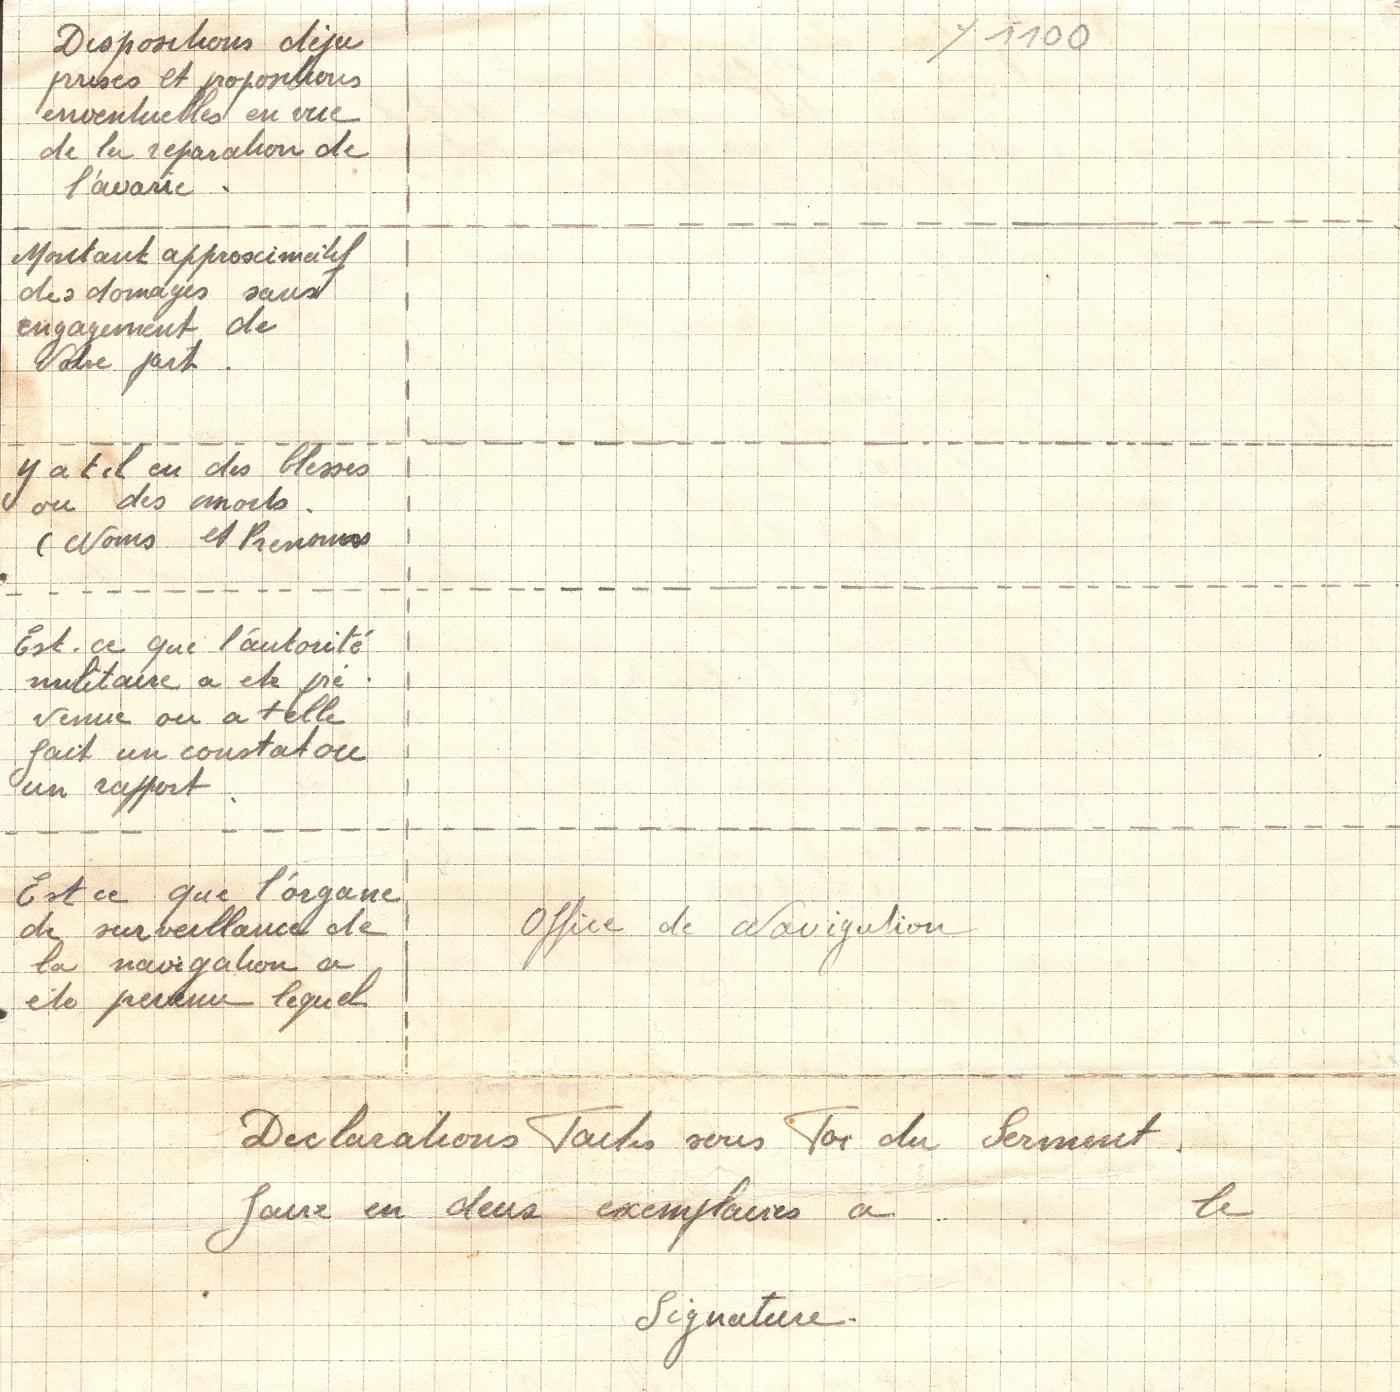 Dispositions déja
prises et propositions
enventuelles en vue
de la reparation de
l'avarie .
1100
Montant approximatif
des domages sans
engagement de
Votre part .
Y a t il eu des blesses
ou des morts .
( Noms et Prenoms
Est-ce que l'autorité
militaire a ete pré -
venue ou a t elle
fait un constat ou
un rapport .
Est ce que l'organe
de surveillance de
la navigation a
ete prevenu lequel
Office de Navigation
Declarations Faites sous Foi du Serment .
Faire en deux exemplaires a le
Signature .